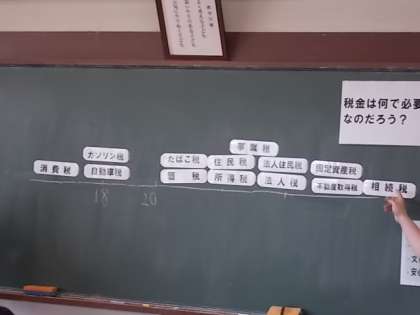 税金は何で必要
なのだろう？
事業税
ガソリン税
たばこ税
住民税
法人住民税
固定資産税
消費税
自動車税
酒税
所得税
法人税
不動産取得税
相続税
18
20